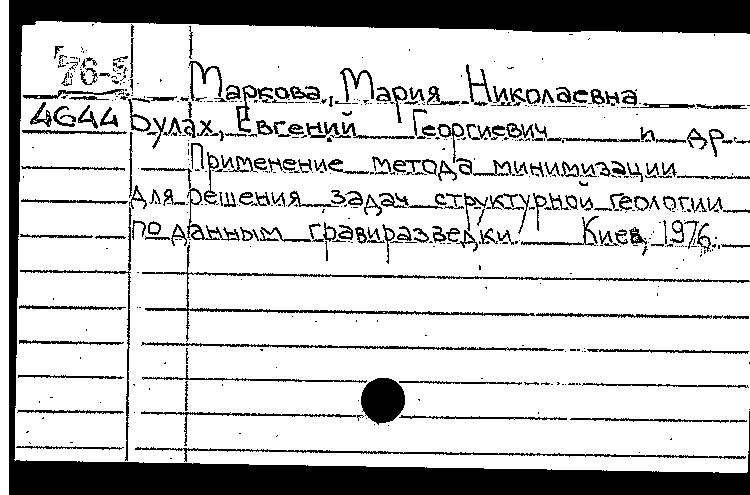 76-5
Маркова, Мария Николаевна
4644 Булах, Евгений Георгиевич и др
Применение метода минимизации
для решения задач структурной геологии
по данным гравиразведки Киев, 1976.